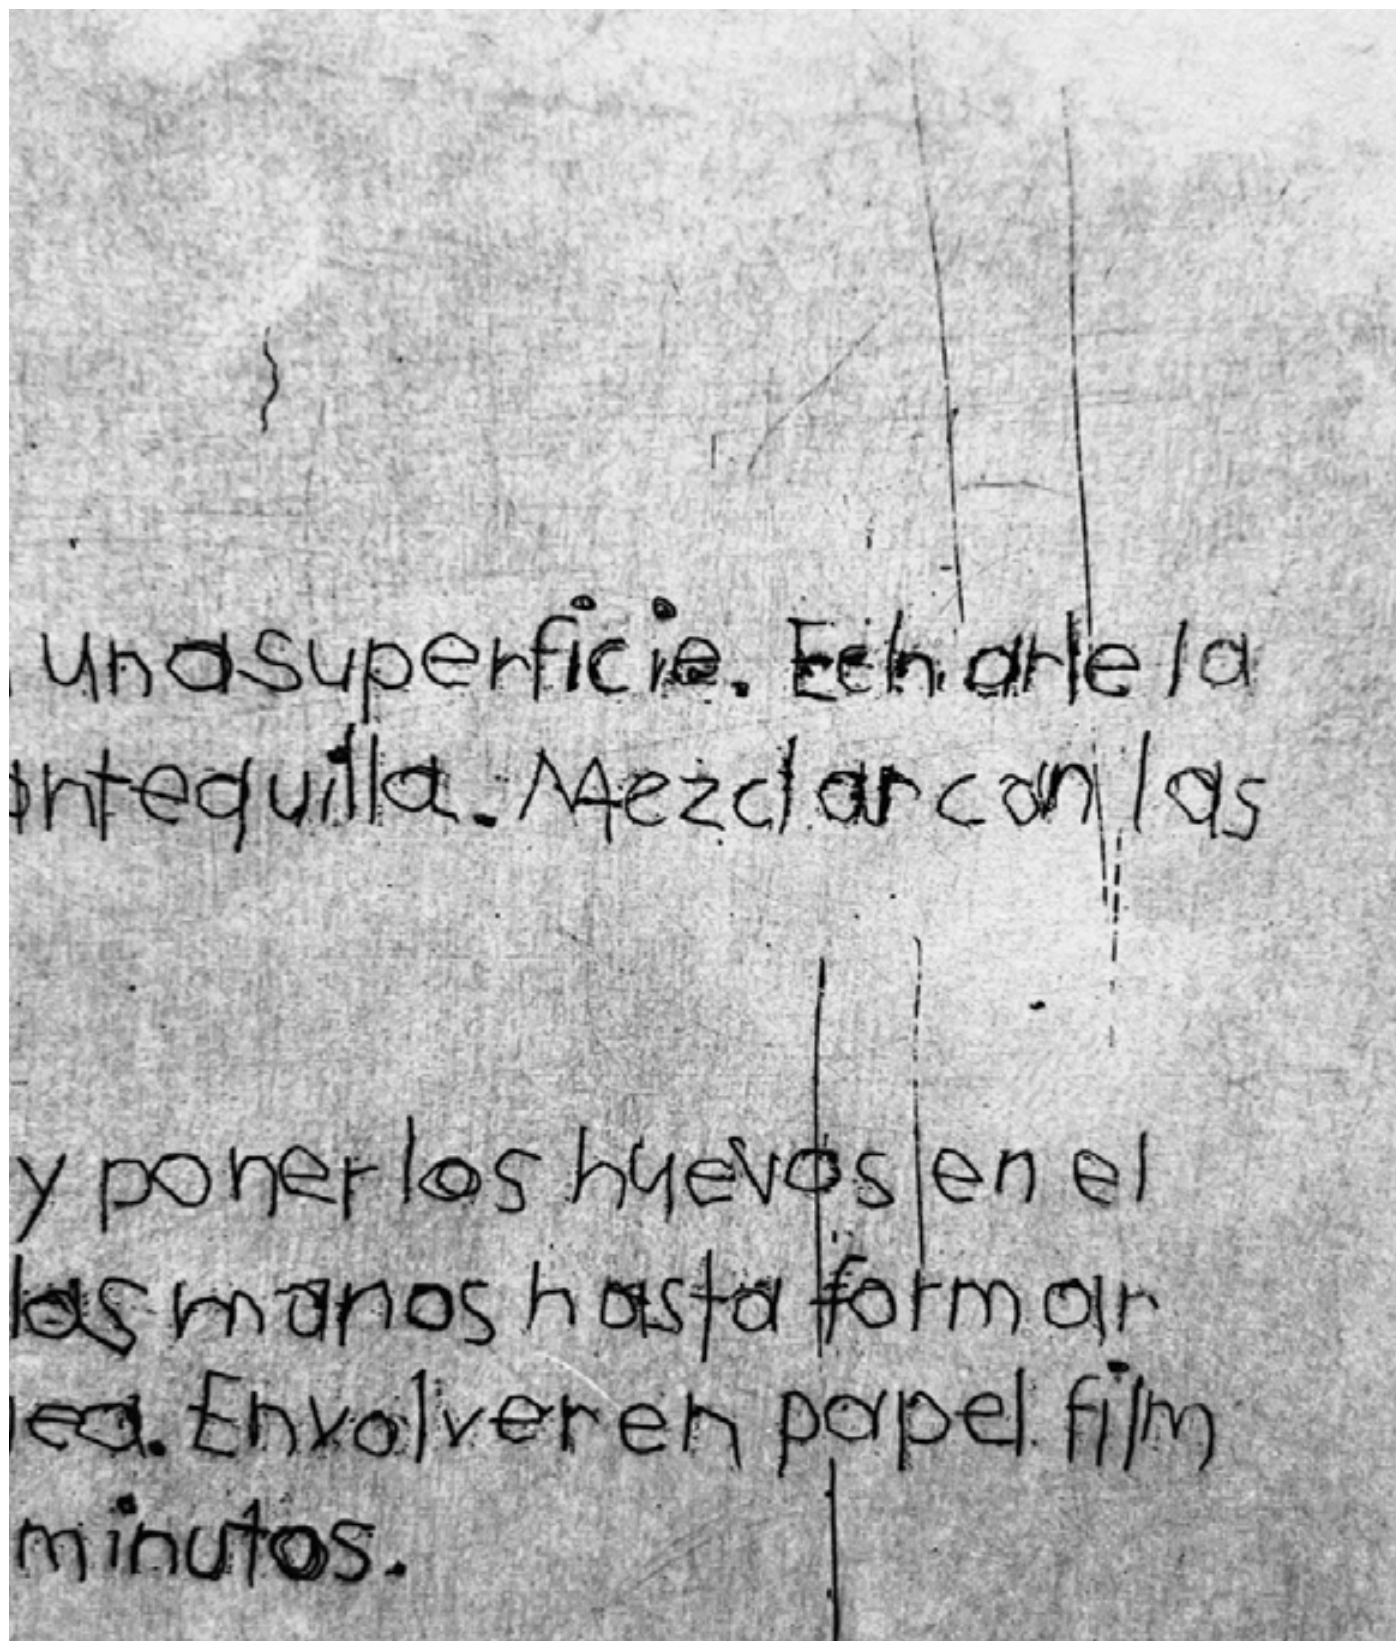 una superficie. Echarle la
antequilla. Mezclar con las
y poner los huevos en el
las manos hasta formar
ea. Envolver en papel film
minutos.